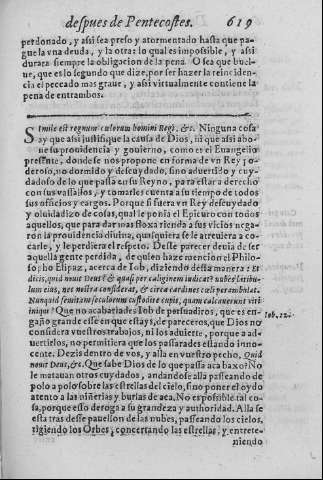 despues de Pentecostes. 619
perdonado, y assi sea preso y atormentado hasta que pa-
gue la vna deuda, y la otra: lo qual es impossible, y assi
durara siempre la obligacion de la pena. O sea que buel-
ue, que es lo segundo que dize, por ser hazer la reinciden-
cia el peccado mas graue, y assi virtualmente contiene la
pena de entrambos.
Simile est regnum cælorum homini Regi, &c. Ninguna cosa
ay que assi justifique la causa de Dios, ni que assi abo-
ne su prouidencia y gouierno, como es el Euangelio
presente, donde se nos propone en forma de vn Rey po-
deroso, no dormido y descuydado, sino aduertido y cuy-
dadoso de lo que passa en su Reyno, para estar a derecho
con sus vassallos, y tomarles cuenta a su tiempo de todos
sus officios y cargos. Porque si fuera vn Rey descuydado
y oluidadizo de cosas, qual le ponia el Epicuro con todos
aquellos, que para dar mas floxa rienda a sus vicios nega-
ron la prouidencia diuina, qualquiera se le atreuiera a to-
carle, y le perdiera el respeto. Deste parecer deuia de ser
aquella gente perdida, de quien haze mencion el Philo-
sopho Elipaz, acerca de Iob, diziendo desta manera: Et
dicis, quid nouit Deus? & quasi per caliginem iudicat? nubes latibu-
lum eius, nec nostra considerat, & circa cardines cæli perambulat.
Nunquid semitam seculorum custodire cupis, quam calcauerunt viri
iniqui? Que no acabariades Iob de persuadiros, que es en-
Iob. 22.
gaño grande esse en que estays, de pareceros, que Dios no
considera vuestros trabajos, ni los aduierte, porque a ad-
uertirlos, no permitiera que los passarades estando inno-
cente. Dezis dentro de vos, y alla en vuestro pecho, Quid
nouit Deus, &c. Que sabe Dios de lo que passa aca baxo? No
le mataran otros cuydados, andandose alla passeando de
polo a polo sobre las estrellas del cielo, sino poner el oydo
atento a las niñerias y burlas de aca. No es possible tal co-
sa, porque esso deroga a su grandeza y authoridad. Alla se
esta tras desse pauellon de las nubes, passeando los cielos,
rigiendo los Orbes, concertando las estrellas, y entrete-
niendo